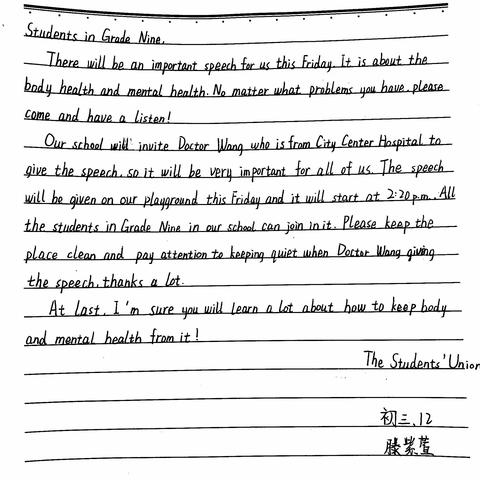 Students in Grade Nine,
There will be an important speech for us this Friday. It is about the
body health and mental health. No matter what problems you have, please
come and have a listen!
Our school will invite Doctor Wang who is from City Center Hospital to
give the speech, so it will be very important for all of us. The speech
will be given on our playground this Friday and it will start at 2:20 p.m.. All
the students in Grade Nine in our school can join in it. Please keep the
place clean and pay attention to keeping quiet when Doctor Wang giving
the speech, thanks a lot.
At last, I'm sure you will learn a lot about how to keep body
and mental health from it!
The Students' Union
初三.12
滕紫萱